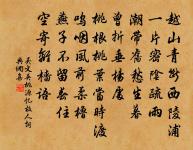 越山青斷西陵浦
一片密陰疏雨
潮帶舊愁生暮
曾折垂楊處
桃根桃葉當時渡
嗚咽風前柔櫓
燕子不留春住
空寄離檣語
吳文英桃源憶故人詞